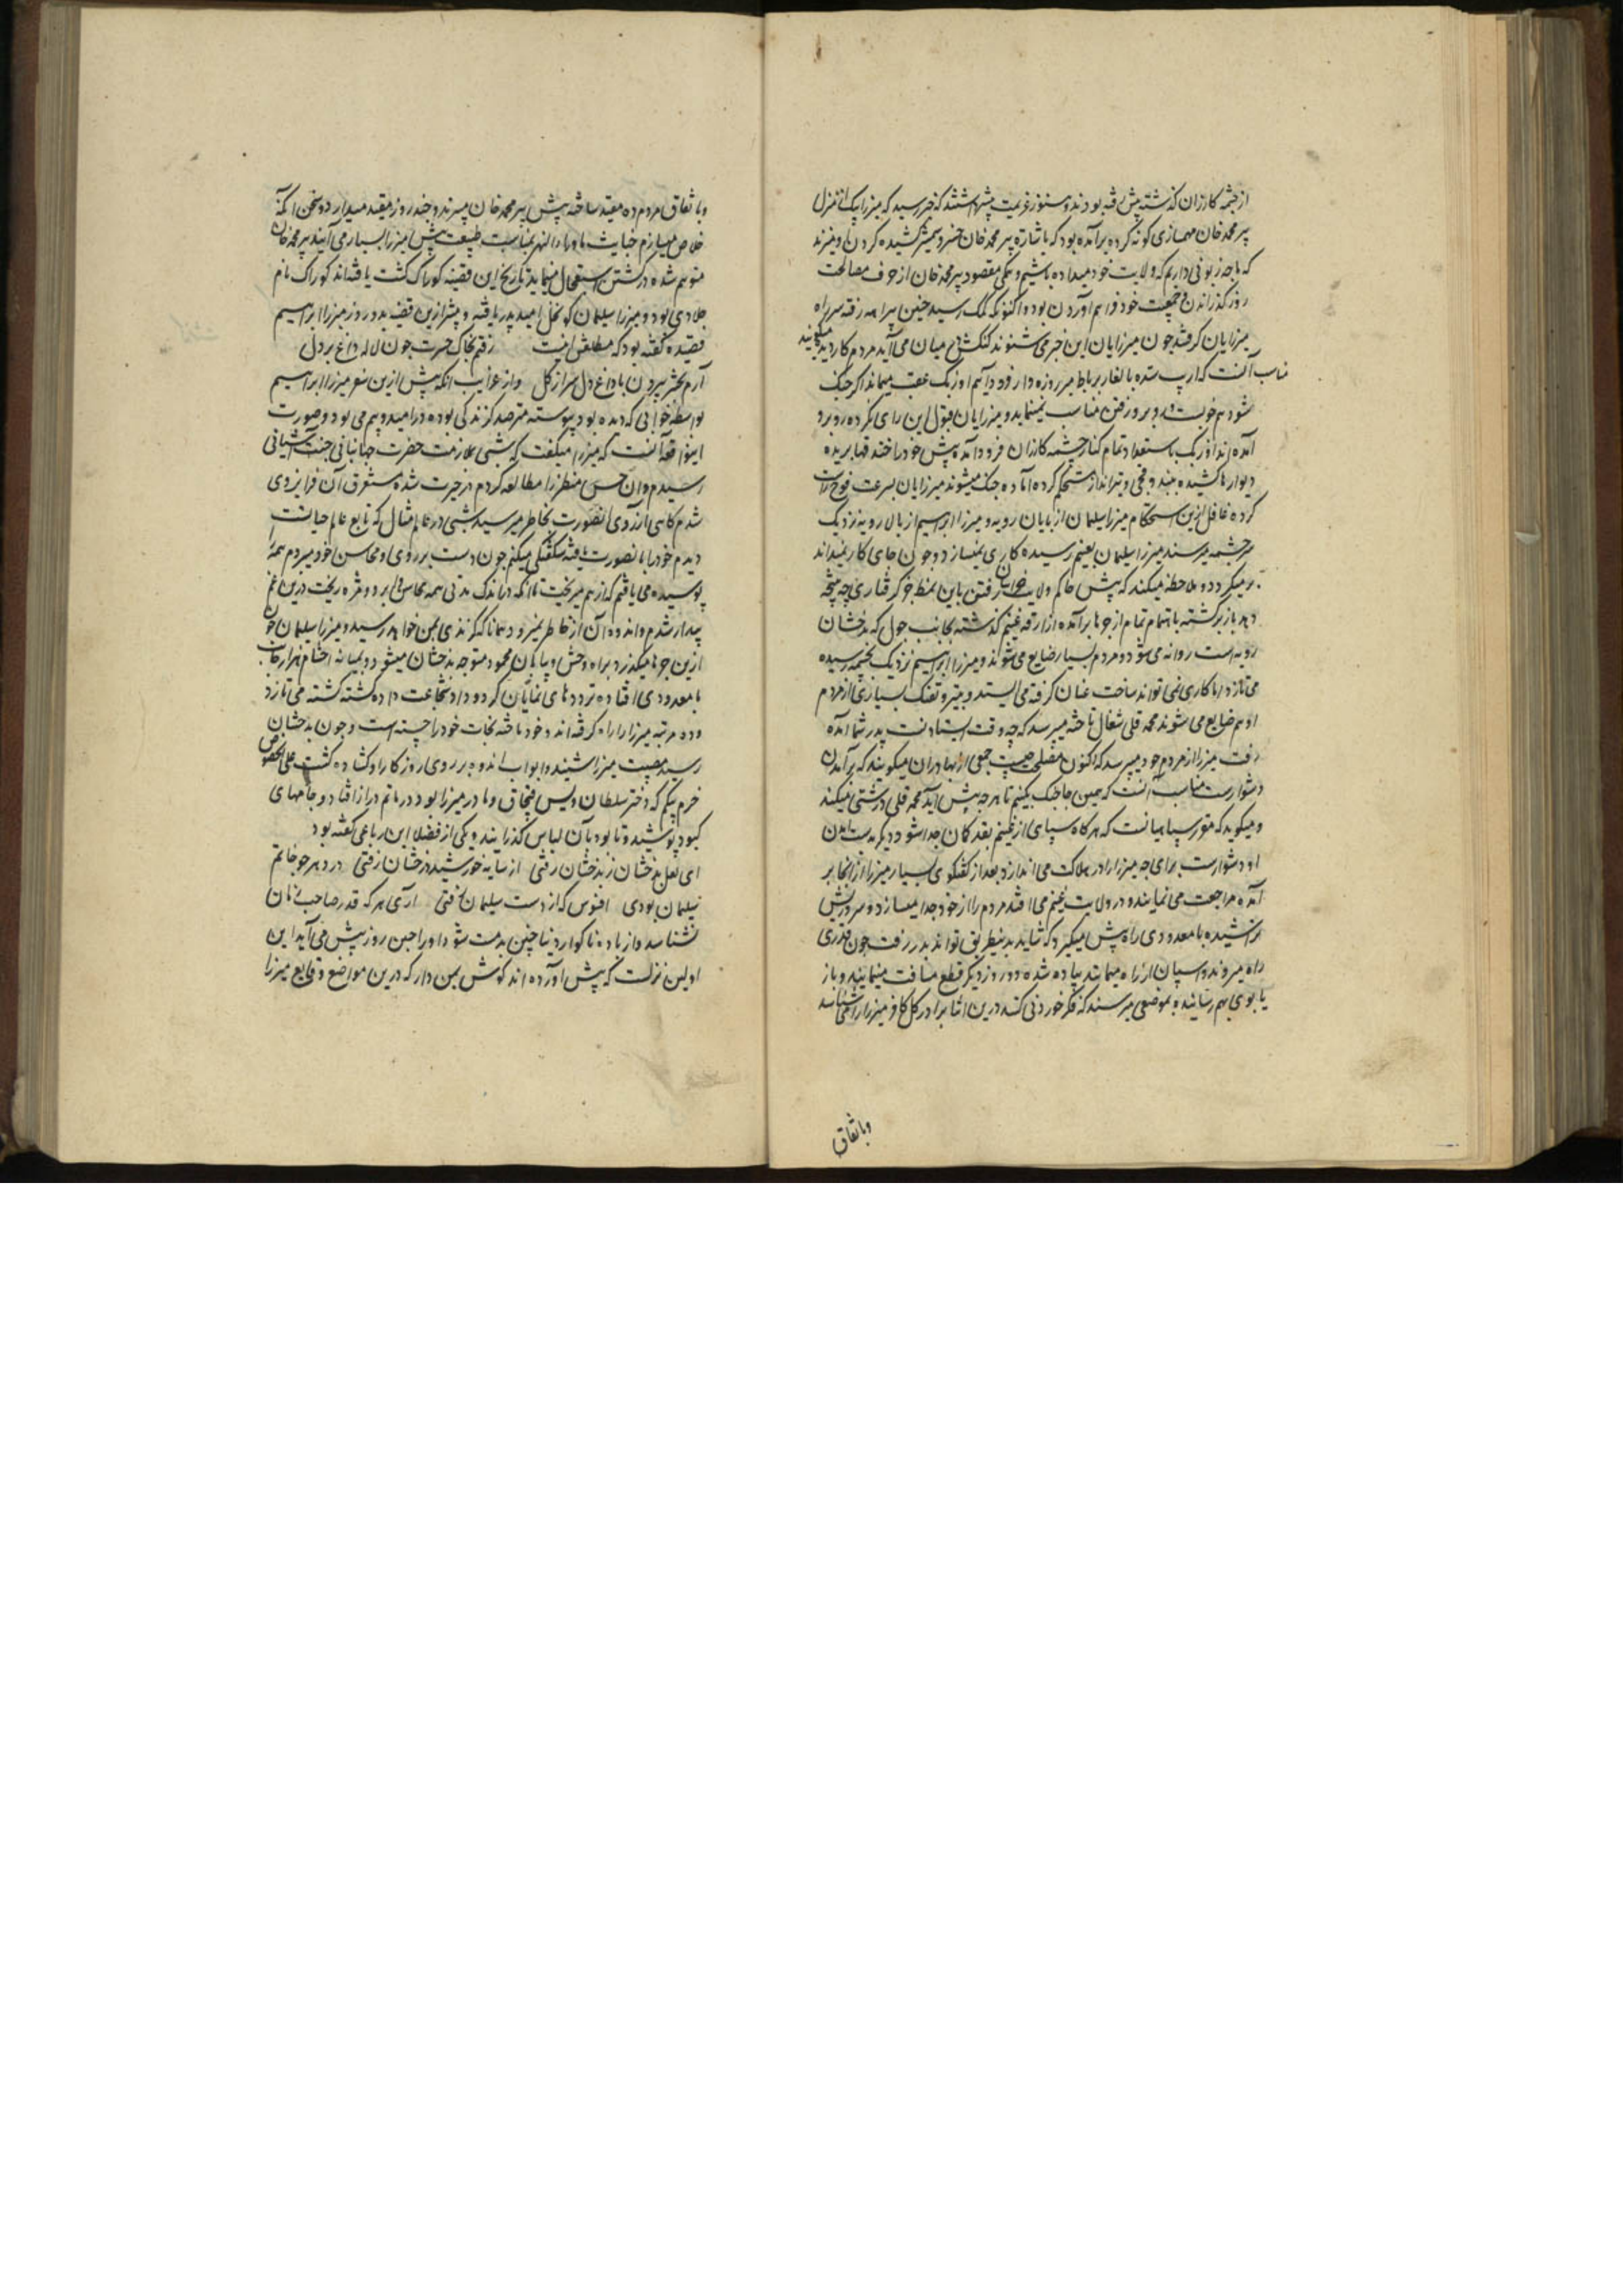 از چشمه کازران گذشته پیش رفته بودند و هنوز عزیمت پیشتر داشتند که خبر رسید که میرزا بیک از منزل
پیر محمد خان مهمسازی گونه کرده برآمده بود که باشاره پیر محمد خان خنجر و شمشیر کشیده گردن او میزنند
که ما چه زبونی داریم که ولایت خود میداده باشیم و همگی مقصود پیر محمد خان از حرف مصالحت
روز گذراندن و جمعیت خود فراهم آوردن بود و اکنون که کمک رسید چنین بیراهه رفته سر راه
میرزایان گرفتند چون میرزایان این خبر می شنوند کنکش در میان می آید مردم کاردیده میگویند
مناسب آنست که از پیش شده بالغار برباط میر روزه دار فرود آئیم اوزبک عقب میماند اگر جنگ
شود هم خوبست و روبرو رفتن مناسب نمینماید و میرزایان قبول این رای نکرده روبرو
آمده اند اوزبک باستعداد تمام کنار چشمه کازران فرود آمده پیش خود را خندقها بریده
دیوارها کشیده بندوقچی و تیرانداز مستحکم کرده آماده جنگ میشوند میرزایان بسرعت فوج راست
کرده غافل ازین استحکام میرزا سلیمان از پایان رویه و میرزا ابراهیم از بالا رویه نزدیک
سرچشمه میرسند میرزا سلیمان بغنیم رسیده کاری نمیسازد و چون جای کار نمیداند
برمیگردد و ملاحظه میکند که پیش حاکم ولایت خراسان رفتن باین نمط جز گرفتاری چه نتیجه
دهد باز برگشته باهتمام تمام از جوها برآمده از ارقه غنیم گذشته بجانب جول که بدخشان
رویه است روانه می شود و مردم بسیار ضایع می شوند و میرزا ابراهیم نزدیک بچشمه رسیده
می تازد اما کاری نمی تواند ساخت عنان گرفته می ایستد و بتیر و تفنگ بسیاری از مردم
او هم ضایع می شوند محمد قلی شغالی تاخته میرسد که چه وقت ایستادنست پدر شما آمده
رفت میرزا از مردم خود میپرسد که اکنون مصلحت چیست جمعی از بهادران میگویند که برآمدن
دشوارست مناسب آنست که همین جا جنگ بکنیم تا هرچه پیش آید محمد قلی درشتی میکند
و میگوید که مقرر سپاهیانست که هرگاه سپاهی از غنیم بقدر کمان جدا شود دیگر بدست آمدن
او دشوارست برای چه میرزا را در هلاکت می اندازد بعد از گفتگوی بسیار میرزا از آنجا بر
آمده مراجعت می نمایند و در ولایت غنیم می افتد مردم را از خود جدا میسازد و سر و ریش
تراشیده با معدودی راه پیش میگیرد که شاید بدینطریق تواند بدر رفت چون قدری
راه میروند و اسپان از راه میمانند پیاده شده دو روز دیگر قطع مسافت مینمایند و باز
یابوی بهم رسانیده بموضعی میرسند که فکر خوردنی کنند درین اثنا برادر کل کافر میرزا را می شناسد
وباتفاق
وباتفاق مردم ده مقید ساخته پیش پیر محمد خان میبرند و چند روز مقید میدارد و سخن آنکه
خلاص میسازم خباثت ماوراءالنهر بمناسبت طبیعت پیش میرزا بسیار می آیند پیر محمد خان
متوهم شده در کشتن استعجال مینماید تاریخ این قضیه کوراک کشت یافته اند کوراک نام
جلادی بود و میرزا سلیمان کو نخل امید پدر یافته و پیشتر ازین قضیه بدو روز میرزا ابراهیم
قصیده گفته بود که مطلعش اینست رفتم بخاک حسرت چون لاله داغ بر دل
آرم بحشر بیرون با داغ دل سر از گل و از غرایب آنکه پیش ازین سفر میرزا ابراهیم
بواسطه خوابی که دیده بود پیوسته مترصد گزندگی بوده در امید و بیم می بود و صورت
اینواقعه آنست که میرزا میگفت که شبی بملازمت حضرت جهانبانی جنت آشیانی
رسیدم و آن حسن منظر را مطالعه کردم در حیرت شده مستغرق آن فر ایزدی
شدم گاهی آرزوی آنصورت بخاطر میرسید شبی در عالم مثال که تابع عالم حیالست
دیدم خود را بآنصورت یافته شگفتگی میکنم چون دست بر روی و محاسن خود میبردم همه را
پوسیده می یافتم که از هم میریخت تا آنکه در اندک مدتی همه محاسن و ابرو و مژه ریخت درین غم
بیدار شدم و اندوه آن از خاطر نمیرود همانا که گزندی بمن خواهد رسید و میرزا سلیمان چون
ازین جوها میگذرد براه وحش و پایان محمود متوجه بدخشان میشود و بمیانه احشام هزار جات
با معدودی افتاده ترددهای نمایان کرد و داد شجاعت داده کشته کشته می تازد
و ده مرتبه میرزا را راه گرفته اند و خود تاخته نجات خود را جسته است و چون بدخشان
رسید مصیبت میرزا شنید و ابواب اندوه بر روی روزگار او گشاده گشت علی الخصوص
خرم بیگم که دختر سلطان ویس قبچاق و مادر میرزا بود در ماتم دراز افتاد و جامهای
کبود پوشید و تا بود بآن لباس گذرانید و یکی از فضلا این رباعی گفته بود
ای لعل بدخشان ز بدخشان رفتی از سایه خورشید درخشان رفتی در دهر چو خاتم
سلیمان بودی افسوس که از دست سلیمان رفتی آری هر که قدر صاحب زمان
نشناسد و از باده ناگوار دنیا چنین بدمست شود او را چنین روز پیش می آید این
اولین نزلست که پیش آورده اند گوش بمن دار که درین مواضع وقایع میرزا